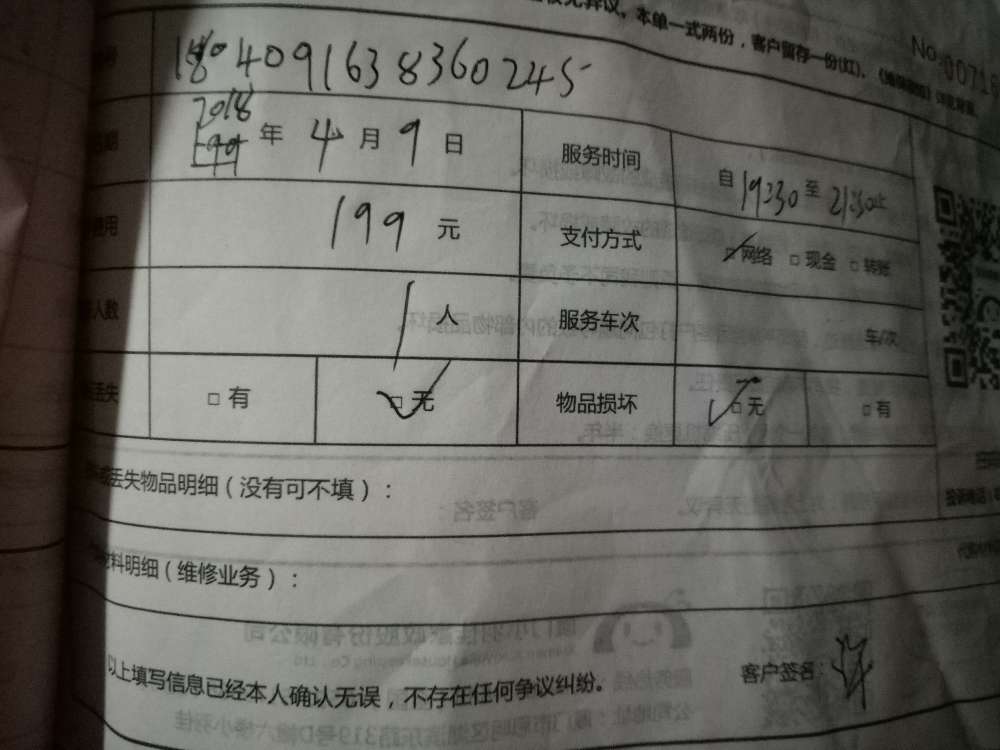 无异议。本单一式两份，客户留存一份(红)、
No:0071
180409163838360245
2018
199 年 4 月 9 日 服务时间 自 19:30 至 21:30止
费用 199 元 支付方式 □网络 □现金 □转账
人数 1 人 服务车次 车/次
丢失 □有 □无 物品损坏 □无 □有
丢失物品明细（没有可不填）：
材料明细（维修业务）：
以上填写信息已经本人确认无误，不存在任何争议纠纷。
客户签名：